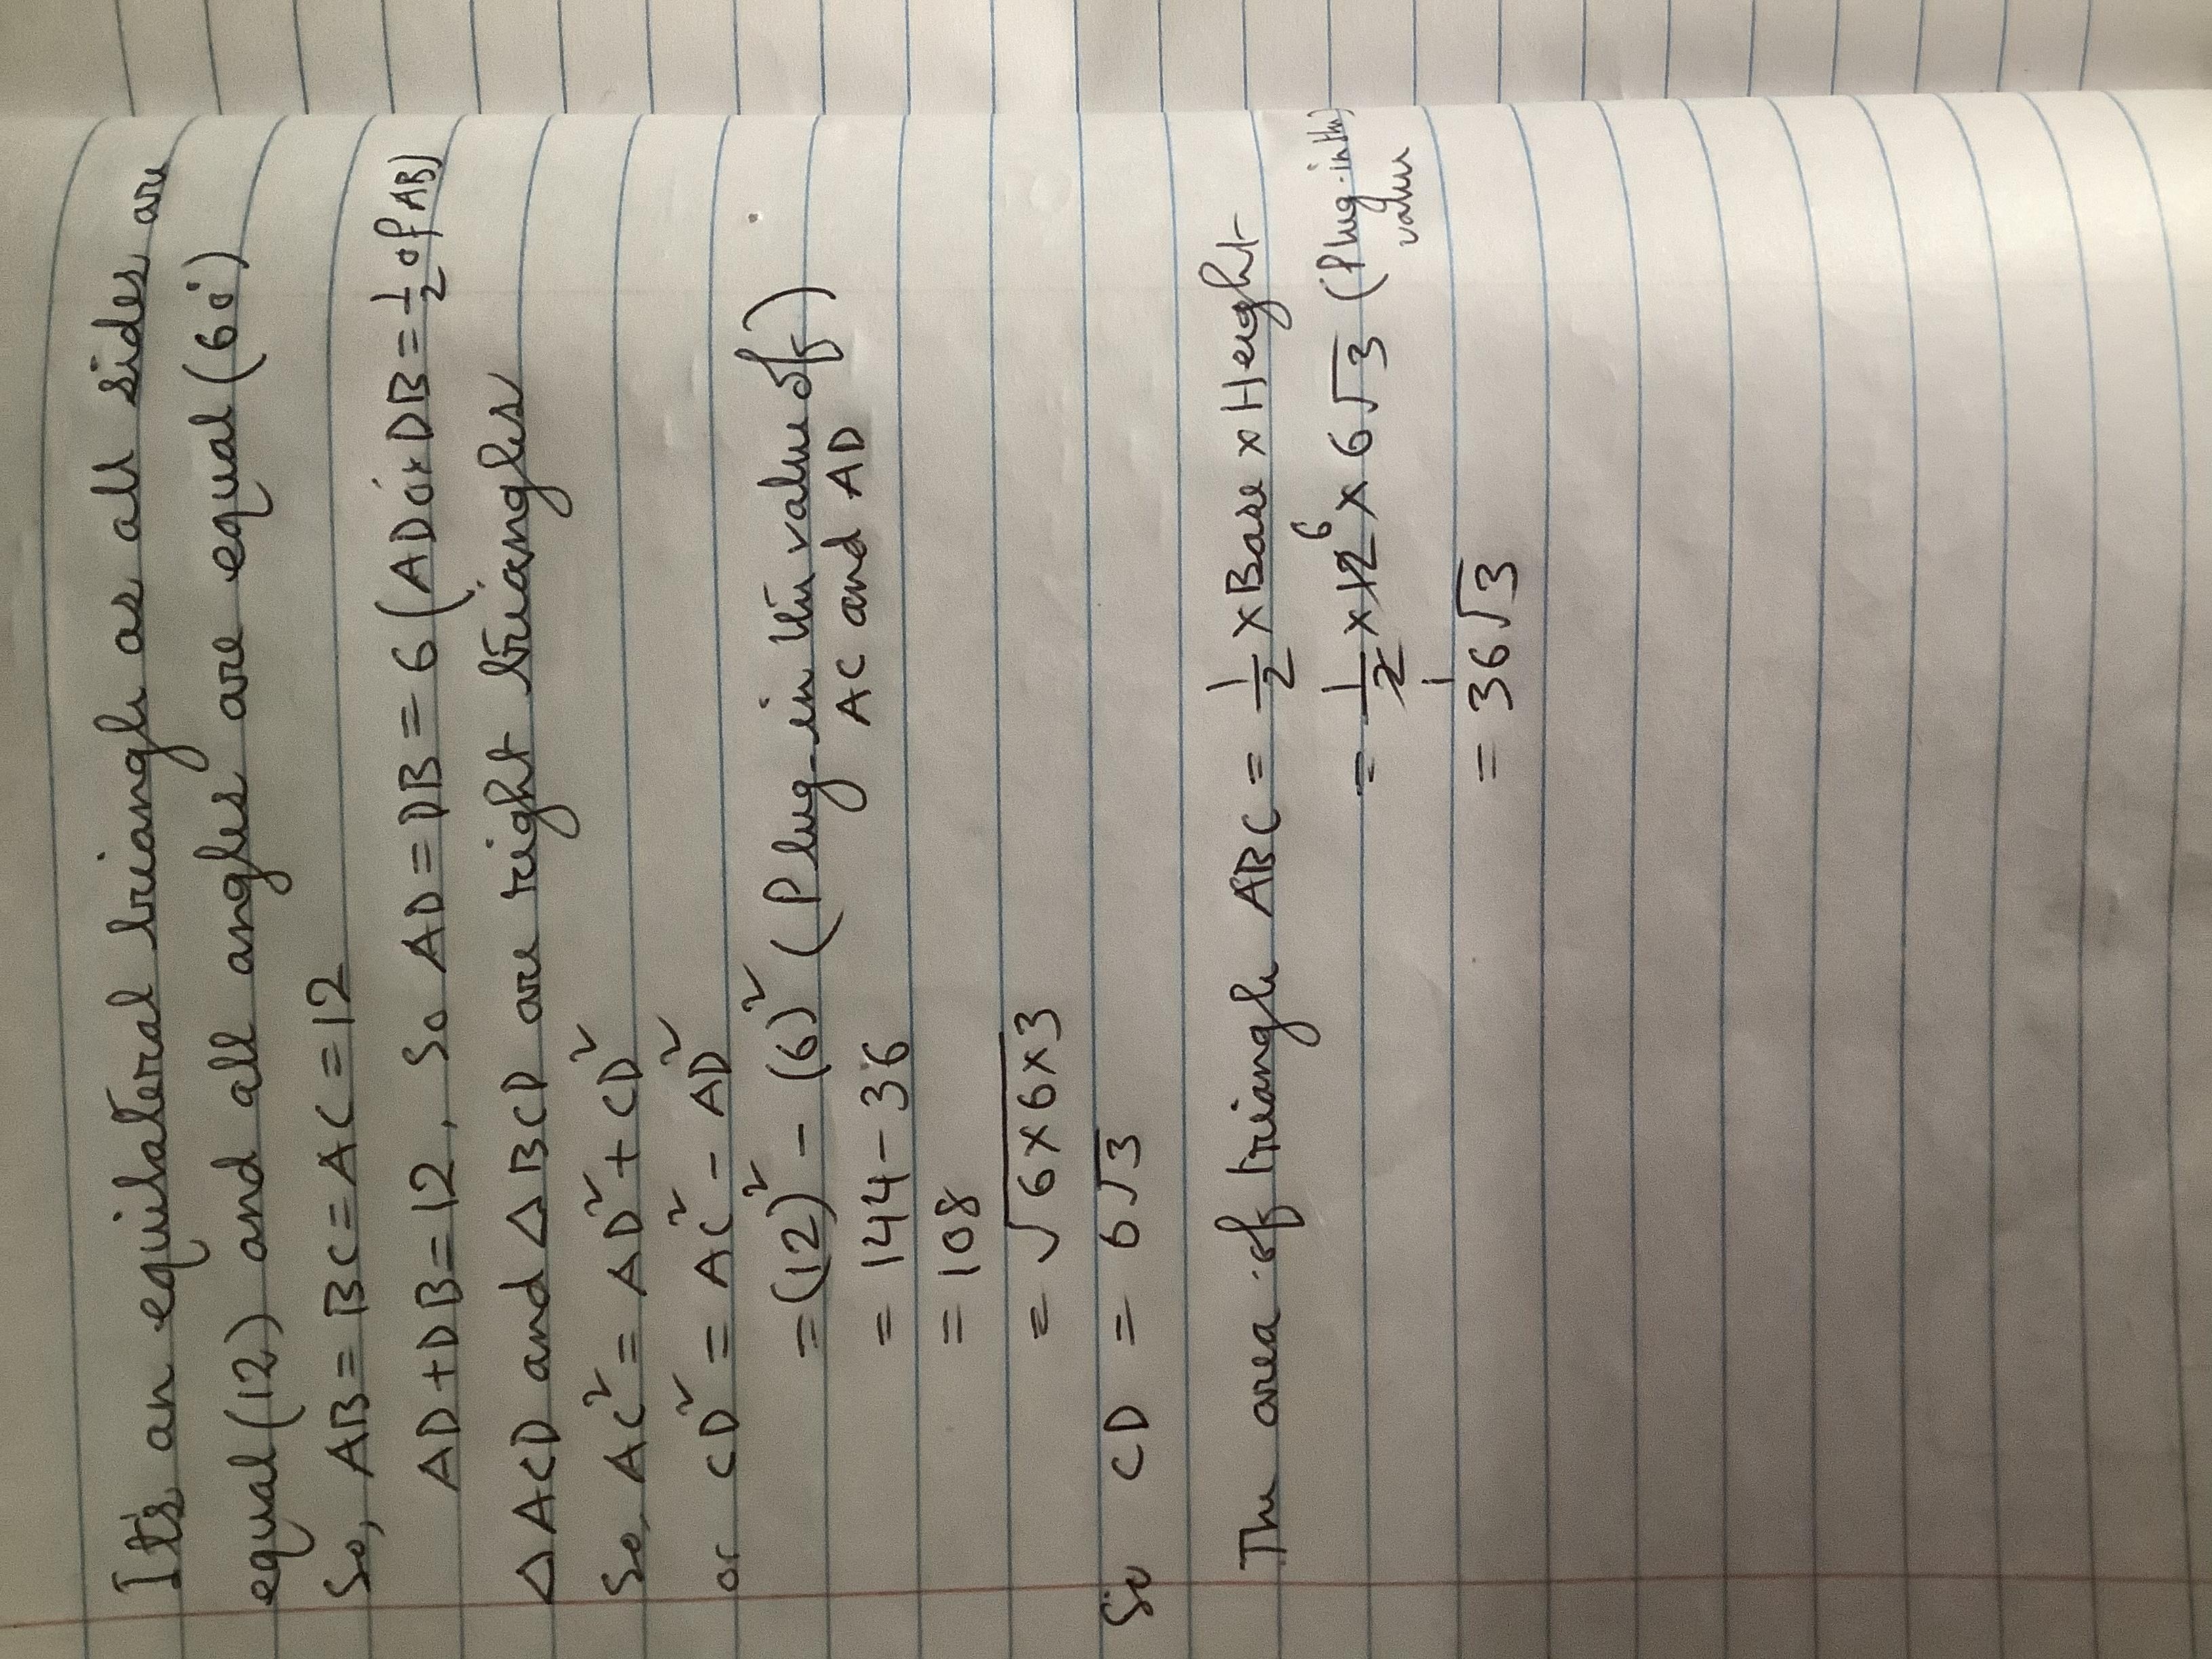 It's an equilateral triangle as all sides are
equal (12) and all angles are equal (60°)
So, AB = BC = AC = 12
AD + DB = 12, So AD = DB = 6 (AD or DB = 1/2 of AB)
△ACD and △BCD are right triangles
So, AC² = AD² + CD²
or CD² = AC² - AD²
= (12)² - (6)² (Plug-in the value of)
AC and AD
= 144 - 36
= 108
= √6×6×3
So CD = 6√3
The area of triangle ABC = 1/2 × Base × Height
= 1/2 × 12 6 × 6√3 (Plug-in the)
value
1
= 36√3